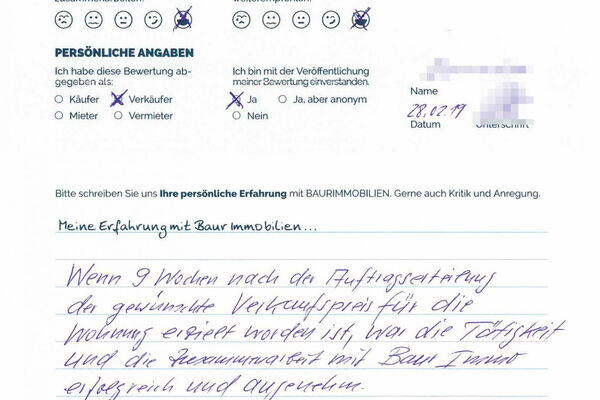 zusammenarbeiten. weiterempfehlen.
PERSÖNLICHE ANGABEN
Ich habe diese Bewertung ab-
gegeben als:
Käufer Verkäufer
Mieter Vermieter
Ich bin mit der Veröffentlichung
meiner Bewertung einverstanden.
Ja Ja, aber anonym
Nein
Name
28.02.19
Datum Unterschrift
Bitte schreiben Sie uns Ihre persönliche Erfahrung mit BAURIMMOBILIEN. Gerne auch Kritik und Anregung.
Meine Erfahrung mit Baur Immobilien...
Wenn 9 Wochen nach der Auftragserteilung
der gewünschte Verkaufspreis für die
Wohnung erzielt worden ist, war die Tätigkeit
und die Zusammenarbeit mit Baur Immo
erfolgreich und angenehm.